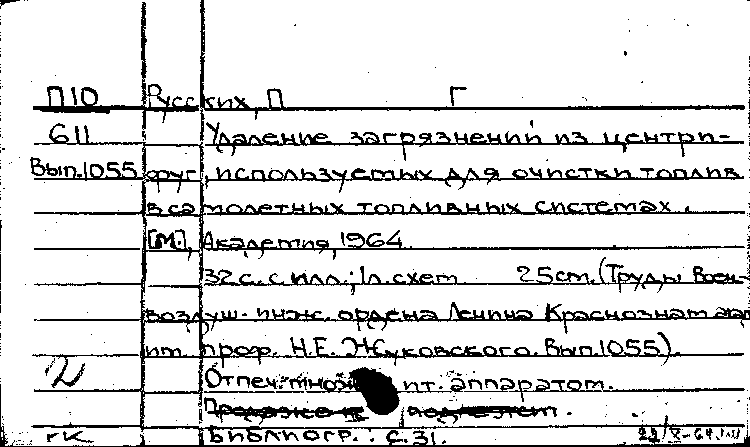 П10 Русских, П Г
611 Удаление загрязнений из центри-
Вып.1055 фуг, используемых для очистки топлив
в самолетных топливных системах.
[М.], Академия, 1964.
32 с. с илл.; 1 л. схем. 25 см. (Труды Воен-
воздуш. инж. ордена Ленина Краснознам. акад.
им. проф. Н.Е. Жуковского. Вып.1055).
2 Отпеч. множит. аппаратом.
Продаже не подлежит.
гк Библиогр.: с. 31.